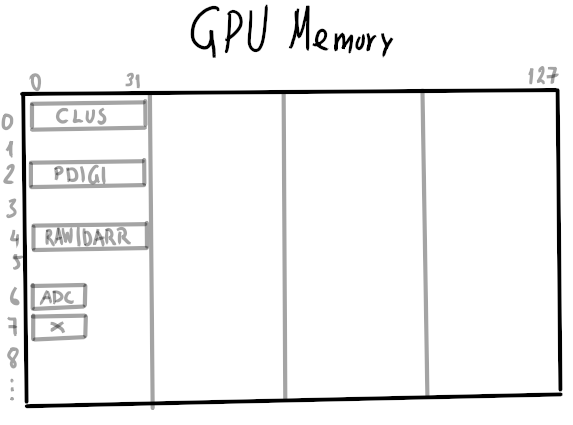 GPU Memory
0 31 127
0 CLUS
1
2 PDIGI
3
4 RAWIDARR
5
6 ADC
7 X
8
⋮